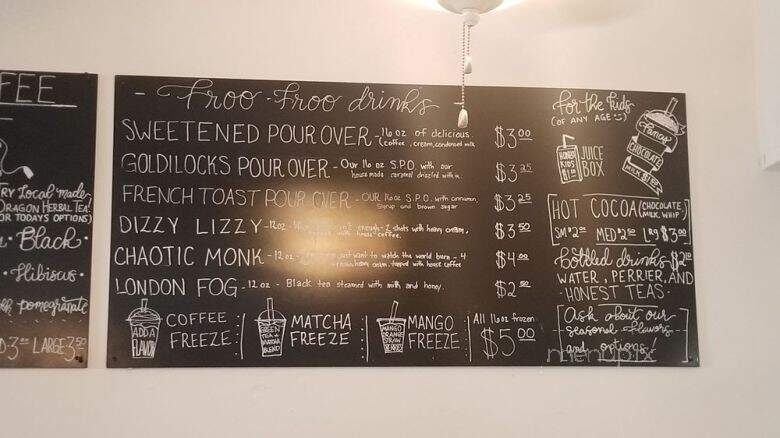 FEE
TRY Local made
DRAGON HERBAL TEA!
FOR TODAYS OPTIONS)
Black
Hibiscus
pomegranate
LARGE 3.50
- Froo-Froo drinks -
SWEETENED POUR OVER - 16 oz of delicious
coffee, cream, condensed milk
$3.00
GOLDILOCKS POUR OVER - Our 16 oz S.P.O. with our
house made caramel drizzled with it.
$3.25
FRENCH TOAST POUR OVER - OUR 16 oz S.P.O. with cinnamon
syrup and brown sugar
$3.25
DIZZY LIZZY - 12 oz - enough - 2 shots with heavy cream,
with house coffee.
$3.50
CHAOTIC MONK - 12 oz - just want to watch the world burn - 4
heavy cream, topped with house coffee
$4.00
LONDON FOG - 12 oz - Black tea steamed with milk and honey.
$2.50
ADD A
FLAVOR
COFFEE
FREEZE
GREEN
TEA +
MATCHA
BLEND
MATCHA
FREEZE
MANGO
ORANGE
STRAW
BERRY
MANGO
FREEZE
All 16 oz frozen
$5.00
for the kids
(OF ANY AGE)
HONEST
KIDS
JUICE
BOX
Fancy
CHOCOLATE
MILK
HOT COCOA (CHOCOLATE
MILK, WHIP)
SM $2.00 MED $2.50 LRG $3.00
bottled drinks $2.10
WATER, PERRIER, AND
HONEST TEAS
Ask about our
seasonal flavors
and options!
menupix